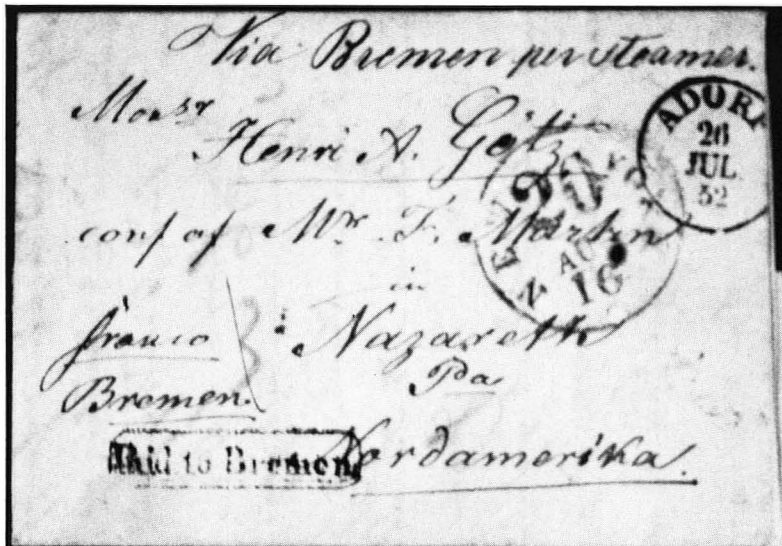 Via Bremen per steamer.
Monsr
Henri A. Götz
ADORF
26
JUL
52
NEW YORK
20
AUG
16
Mr. F. Martin
in
franco
Nazareth
Bremen.
Pa
Paid to Bremen
Nordamerika.